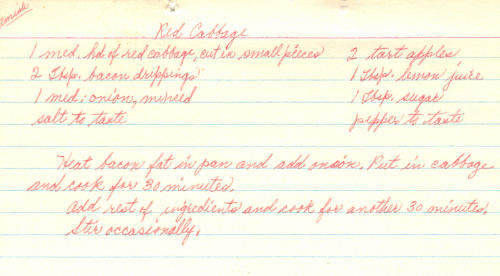 Red Cabbage
1 med. hd of red cabbage, cut in small pieces 2 tart apples
2 Tbsp. bacon drippings 1 Tbsp. lemon juice
1 med. onion, minced 1 Tbsp. sugar
salt to taste pepper to taste
Heat bacon fat in pan and add onion. Put in cabbage
and cook for 30 minutes.
Add rest of ingredients and cook for another 30 minutes.
Stir occasionally.